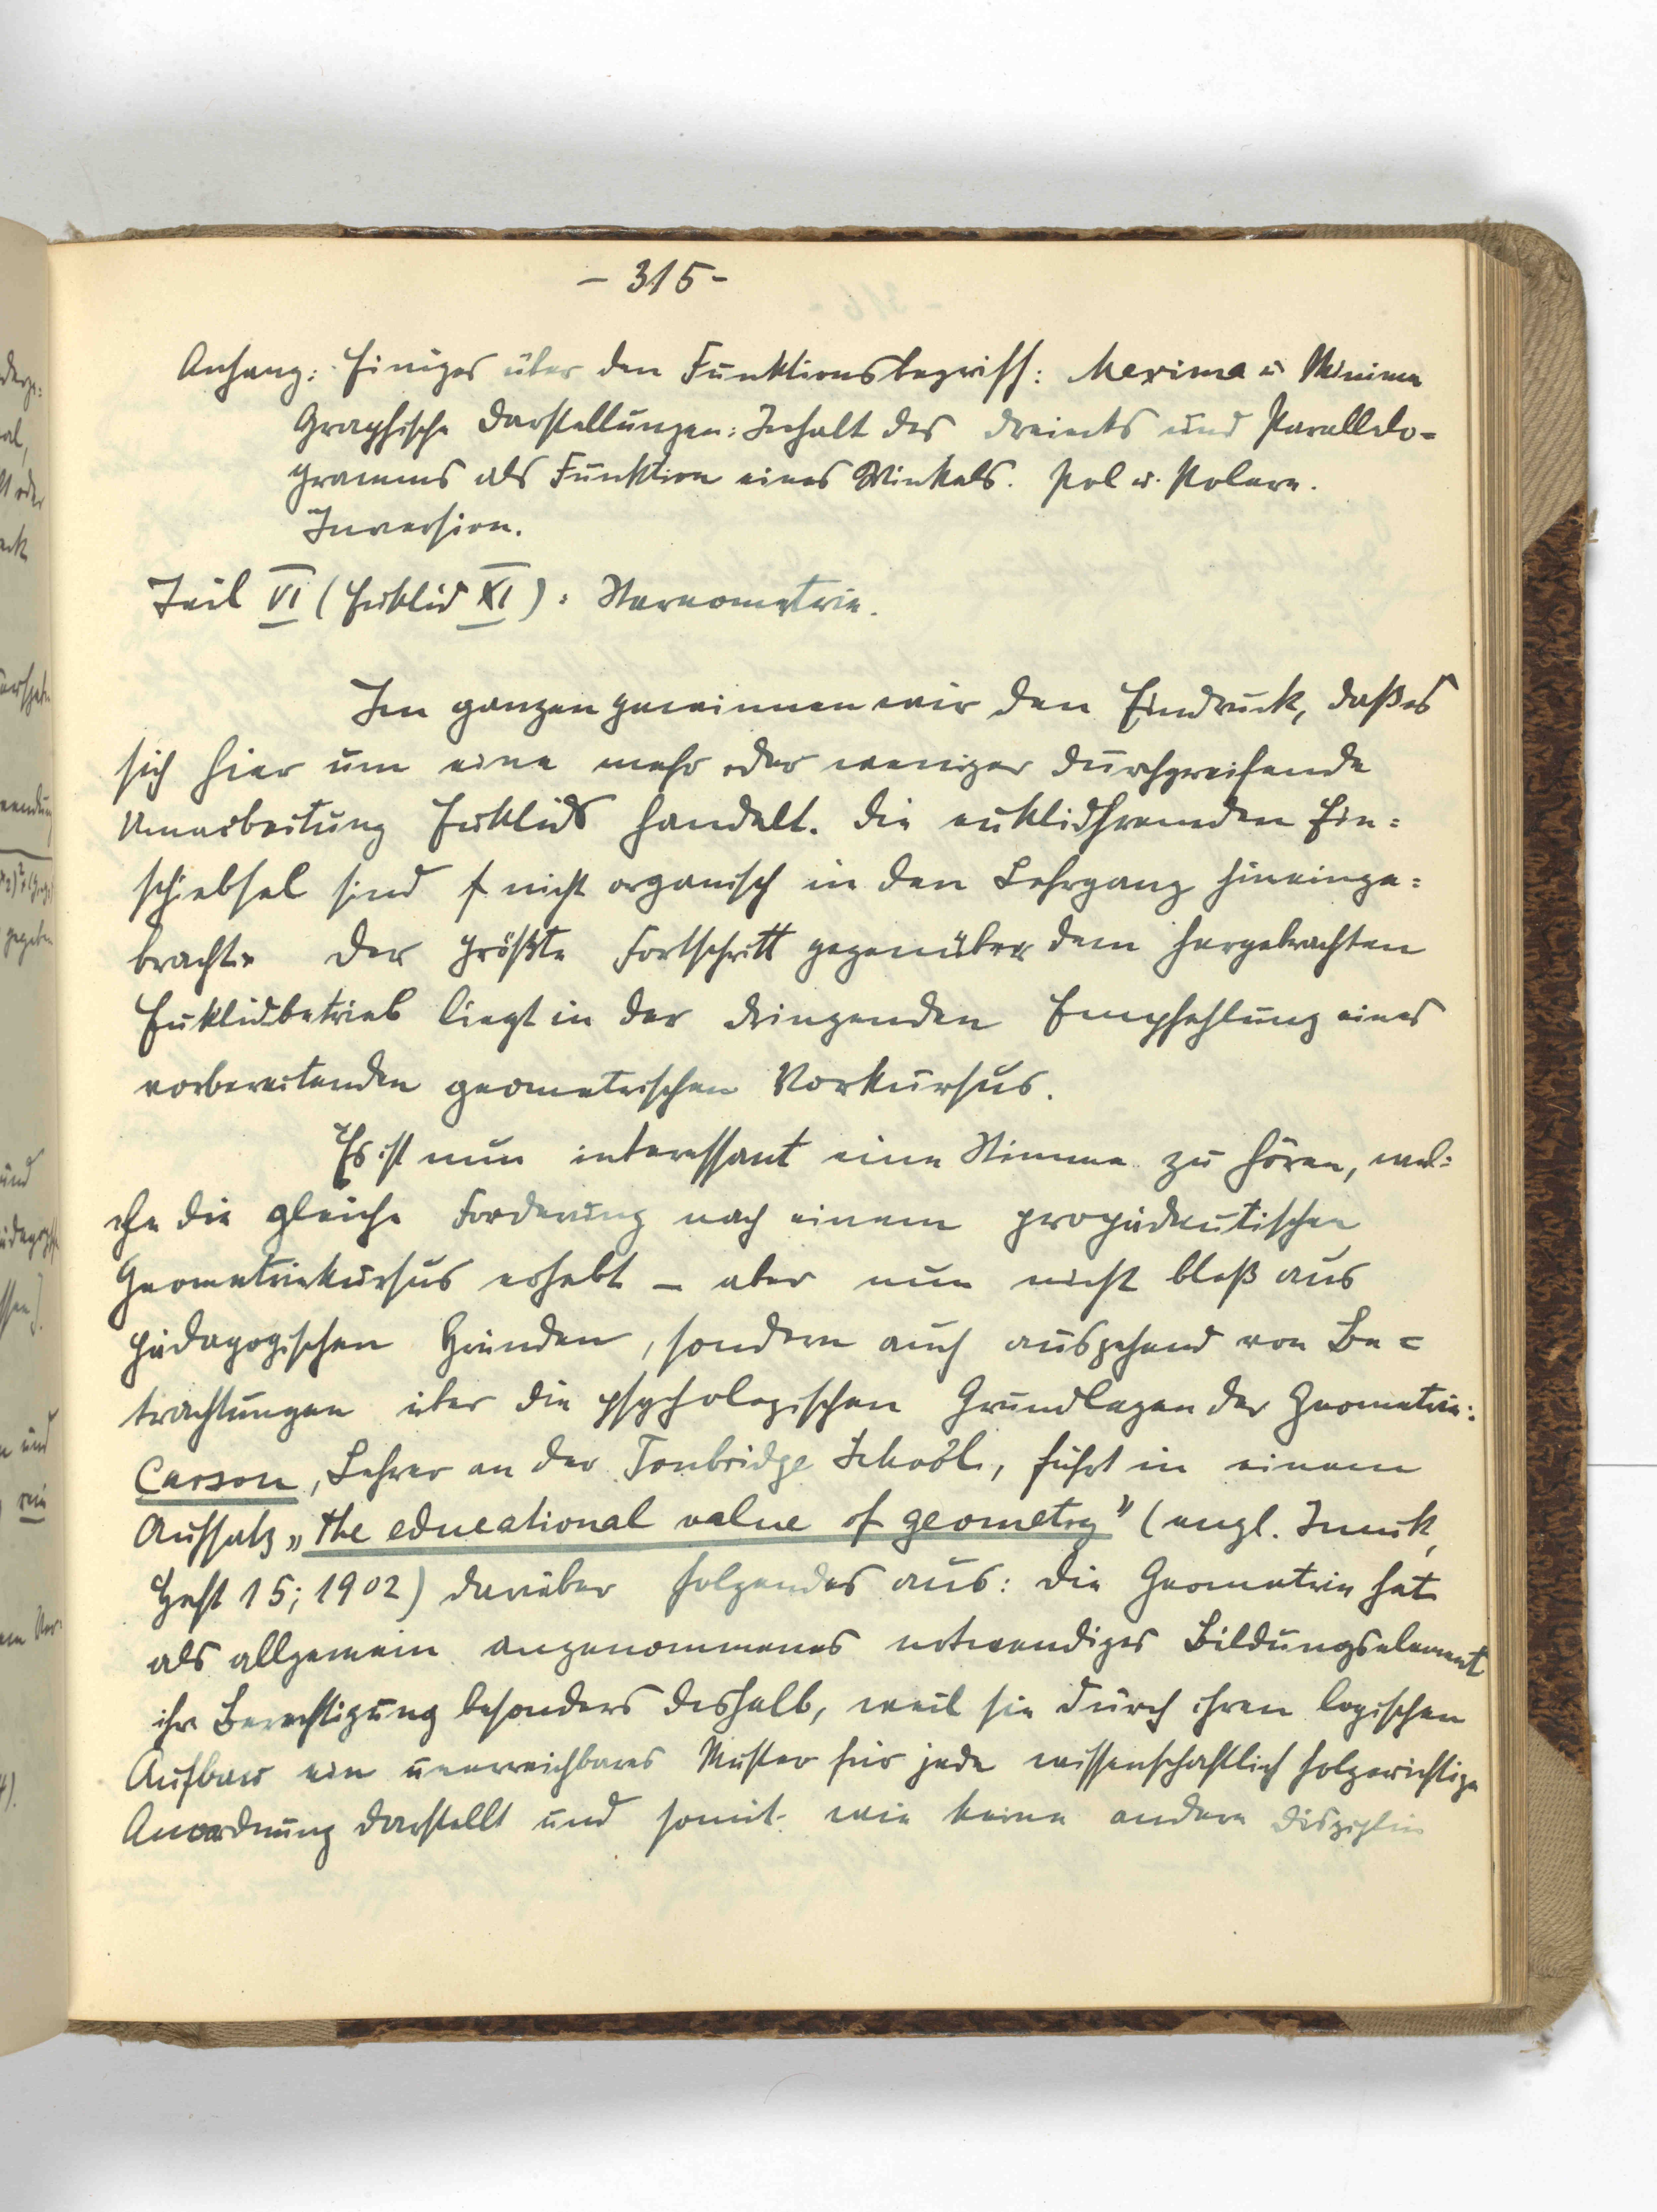 - 315 -
Anhang: Einiges über den Funktionsbegriff: Maxima u. Minima
Graphische Darstellungen: Inhalt des Dreiecks und Parallelo=
gramms als Funktion eines Winkels. Pol u. Polare.
Inversion.
Teil VI (Euklid XI): Stereometrie.
Im ganzen gewinnen wir den Eindruck, daß es
sich hier um eine mehr oder weniger durchgreifende
Umarbeitung Euklids handelt. Die euklidfremden Ein=
schiebsel sind nicht organisch in den Lehrgang hineinge=
bracht. Der größte Fortschritt gegenüber dem hergebrachten
Euklidbetrieb liegt in der dringenden Empfehlung eines
vorbereitenden geometrischen Vorkursus.
Es ist nun interessant eine Stimme zu hören, wel=
che die gleiche Forderung nach einem propädeutischen
Geometriekursus erhebt - aber nun nicht bloß aus
pädagogischen Gründen, sondern auch ausgehend von Be=
trachtungen über die psychologischen Grundlagen der Geometrie:
Carson, Lehrer an der Tonbridge School, führt in einem
Aufsatz „the educational value of geometry" (engl. Imuk,
Heft 15; 1902) darüber folgendes aus: Die Geometrie hat
als allgemein angenommenes notwendiges Bildungselement
ihre Berechtigung besonders deshalb, weil sie durch ihren logischen
Aufbau ein unerreichbares Muster für jede wissenschaftlich folgerichtige
Anordnung darstellt und somit wie keine andere Disziplin